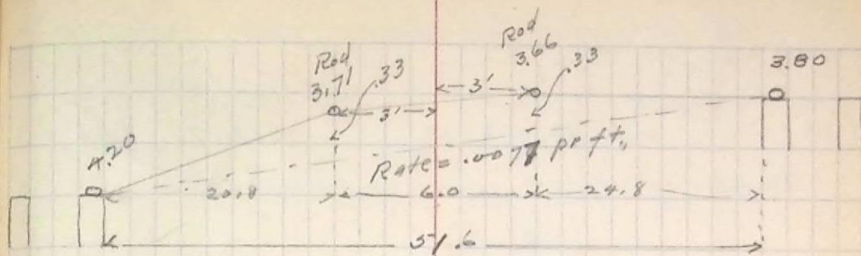 Rod
3.71
.33
3'
Rod
3.66
.33
3'
3.80
4.20
Rate = .0077 pr ft.
20.8
6.0
24.8
51.6